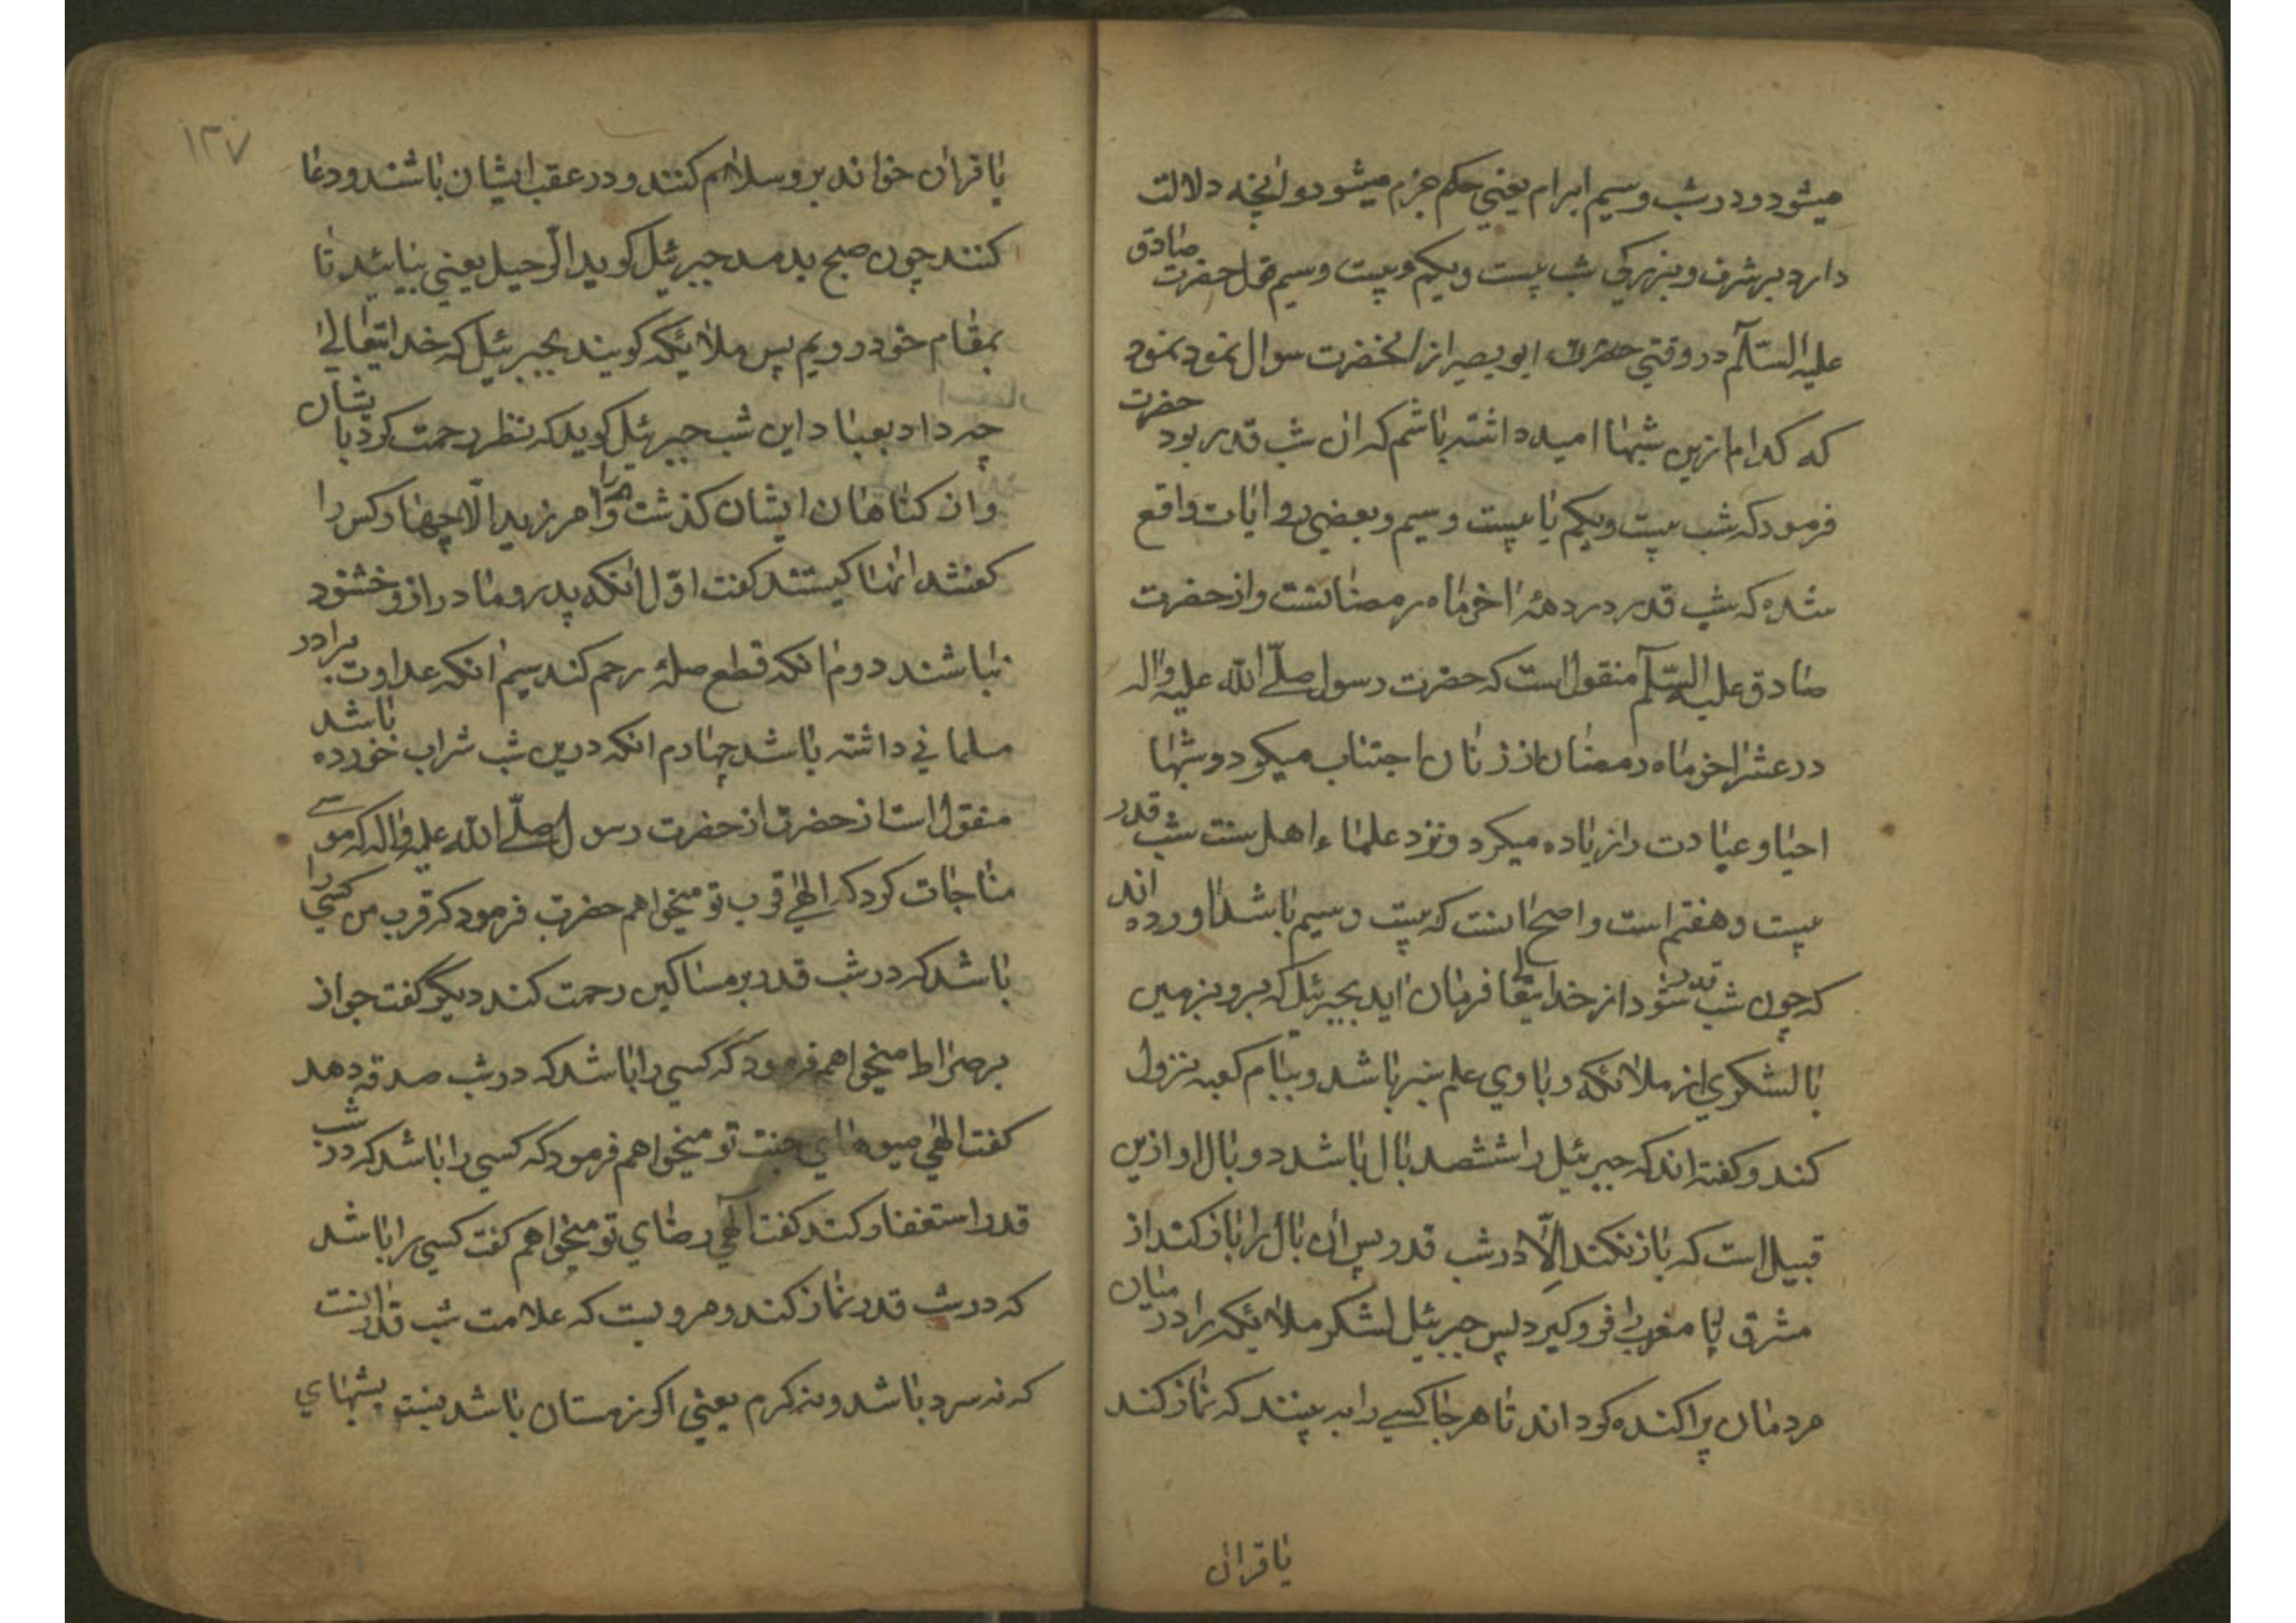 میشود ودر شب وسیم ابرام یعنی حکم جزم میشود وانچه دلالت
دارد بر شرف وبزرکی شب بیست ویکم وبیست وسیم قول حضرت صادق
علیه السّلام در وقتی حضرت ابو بصیر از انحضرت سوال نمود نمود
که کدام ازین شبها امید داشته باشم که ان شب قدر بود حضرت
فرمود که شب بیست ویکم یا بیست وسیم وبعضی روایات واقع
شده که شب قدر در دهۀ اخر ماه رمضانست واز حضرت
صادق علیه السّلام منقول است که حضرت رسول صلّی الله علیه واله
در عشر اخر ماه رمضان از زنان اجتناب میکرد وشبها
احیا وعبادت را زیاده میکرد ونزد علماء اهل سنت شب قدر
بیست وهفتم است واصح انست که بیست وسیم باشد اورده اند
که چون شب قدر شود از خدایتعالی فرمان اید بجبرئیل که برو بزمین
با لشکری از ملائکه وبا وی علم سبز باشد وببام کعبه نزول
کند وکفته اند که جبرئیل را ششصد بال باشد دو بال او ازین
قبیل است که باز نکند الّا در شب قدر پس ان بال را باز کند از
مشرق تا مغرب را فرو کیرد پس جبرئیل لشکر ملائکه را در میان
مردمان پراکنده کرداند تا هر جا کسی را به بینند که نماز کند
یا قران
۱۳۷
یا قران خواند برو سلام کنند ودر عقب ایشان باشند ودعا
کنند چون صبح بدمد جبرئیل کوید الرّحیل یعنی بیائید تا
بمقام خود رویم پس ملائکه کویند بجبرئیل که خدایتعالی
چه داد بعباد این شب جبرئیل کوید که نظر رحمت کرد بایشان
واز کناهان ایشان کذشت وامرزید الّا چهار کس را
کفتند انها کیستند کفت اوّل انکه پدر ومادر از و خشنود
نباشند دوم انکه قطع صلۀ رحم کند سیم انکه عداوت برادر
مسلمانی داشته باشد چهارم انکه درین شب شراب خورده باشد
منقول است از حضرت از حضرت رسول صلّی الله علیه واله که موسی
مناجات کرد که الهی قرب تو میخواهم حضرت فرمود که قرب من کسی را
باشد که در شب قدر بر مساکین رحمت کند دیکر کفت جواز
بر صراط میخواهم فرمود که کسی را باشد که در شب صدقه دهد
کفت الهی میوه های جنت تو میخواهم فرمود که کسی را باشد که در شب
قدر استغفار کند کفت الهی رضای تو میخواهم کفت کسی را باشد
که در شب قدر نماز کند ومرویست که علامت شب قدر انست
که نه سرد باشد ونه کرم یعنی اکر زمستان باشد نسبت بشبهای